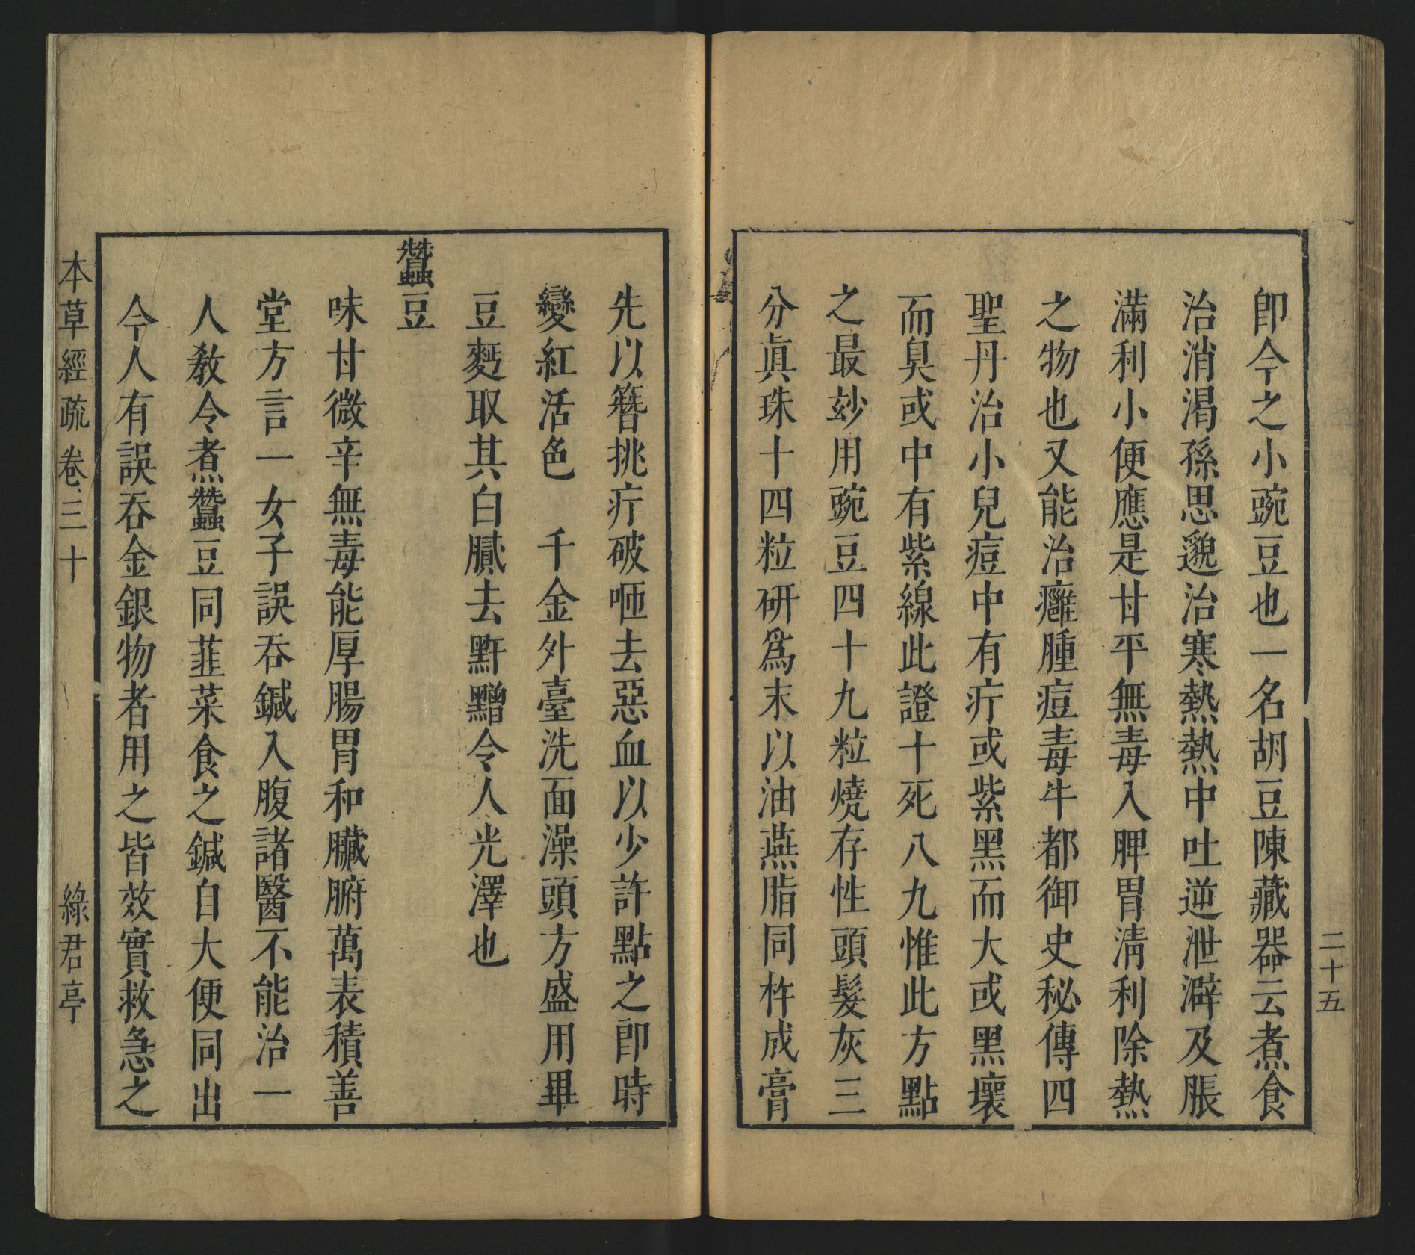 二十五
卽今之小豌豆也一名胡豆陳藏器云煮食
治消渴孫思邈治寒熱熱中吐逆泄澼及脹
滿利小便應是甘平無毒入脾胃淸利除熱
之物也又能治癰腫痘毒牛都御史秘傳四
聖丹治小兒痘中有疔或紫黑而大或黑壞
而臭或中有紫線此證十死八九惟此方點
之最妙用豌豆四十九粒燒存性頭髮灰三
分眞珠十四粒研爲末以油燕脂同杵成膏
先以簪挑疔破咂去惡血以少許點之卽時
變紅活色　千金外臺洗面澡頭方盛用畢
豆麪取其白膩去䵟䵳令人光澤也
蠶豆
味甘微辛無毒能厚腸胃和臟腑萬表積善
堂方言一女子誤吞鍼入腹諸醫不能治一
人敎令煮蠶豆同韮菜食之鍼自大便同出
今人有誤吞金銀物者用之皆效實救急之
本草經疏卷三十
綠君亭